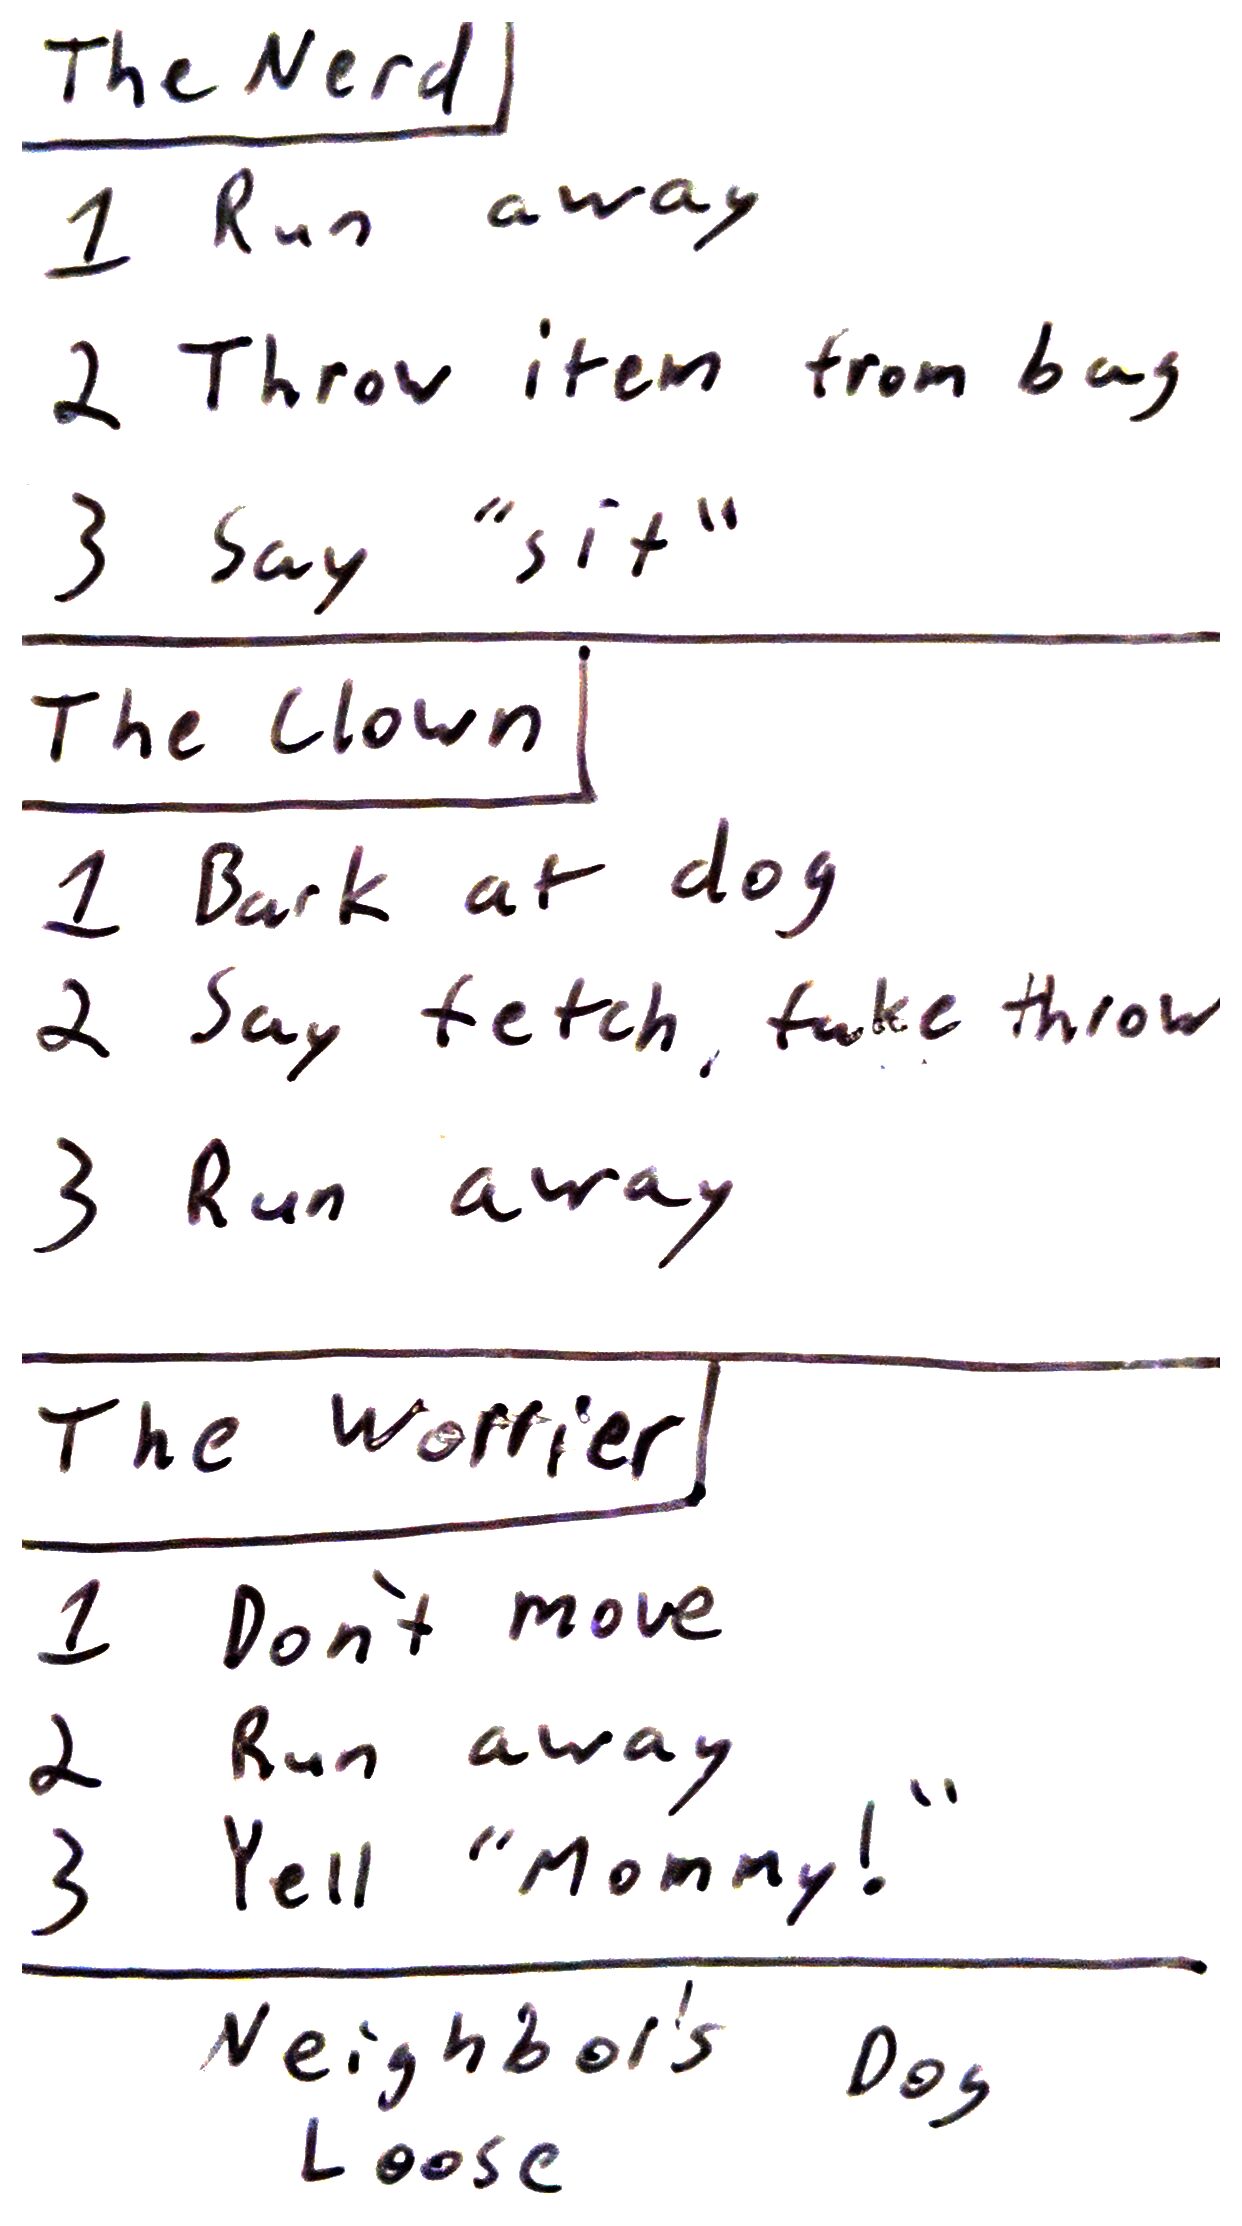 The Nerd
1 Run away
2 Throw item from bag
3 Say "sit"
The Clown
1 Bark at dog
2 Say fetch, fake throw
3 Run away
The Worrier
1 Don't move
2 Run away
3 Yell "Mommy!"
Neighbor's Dog
Loose